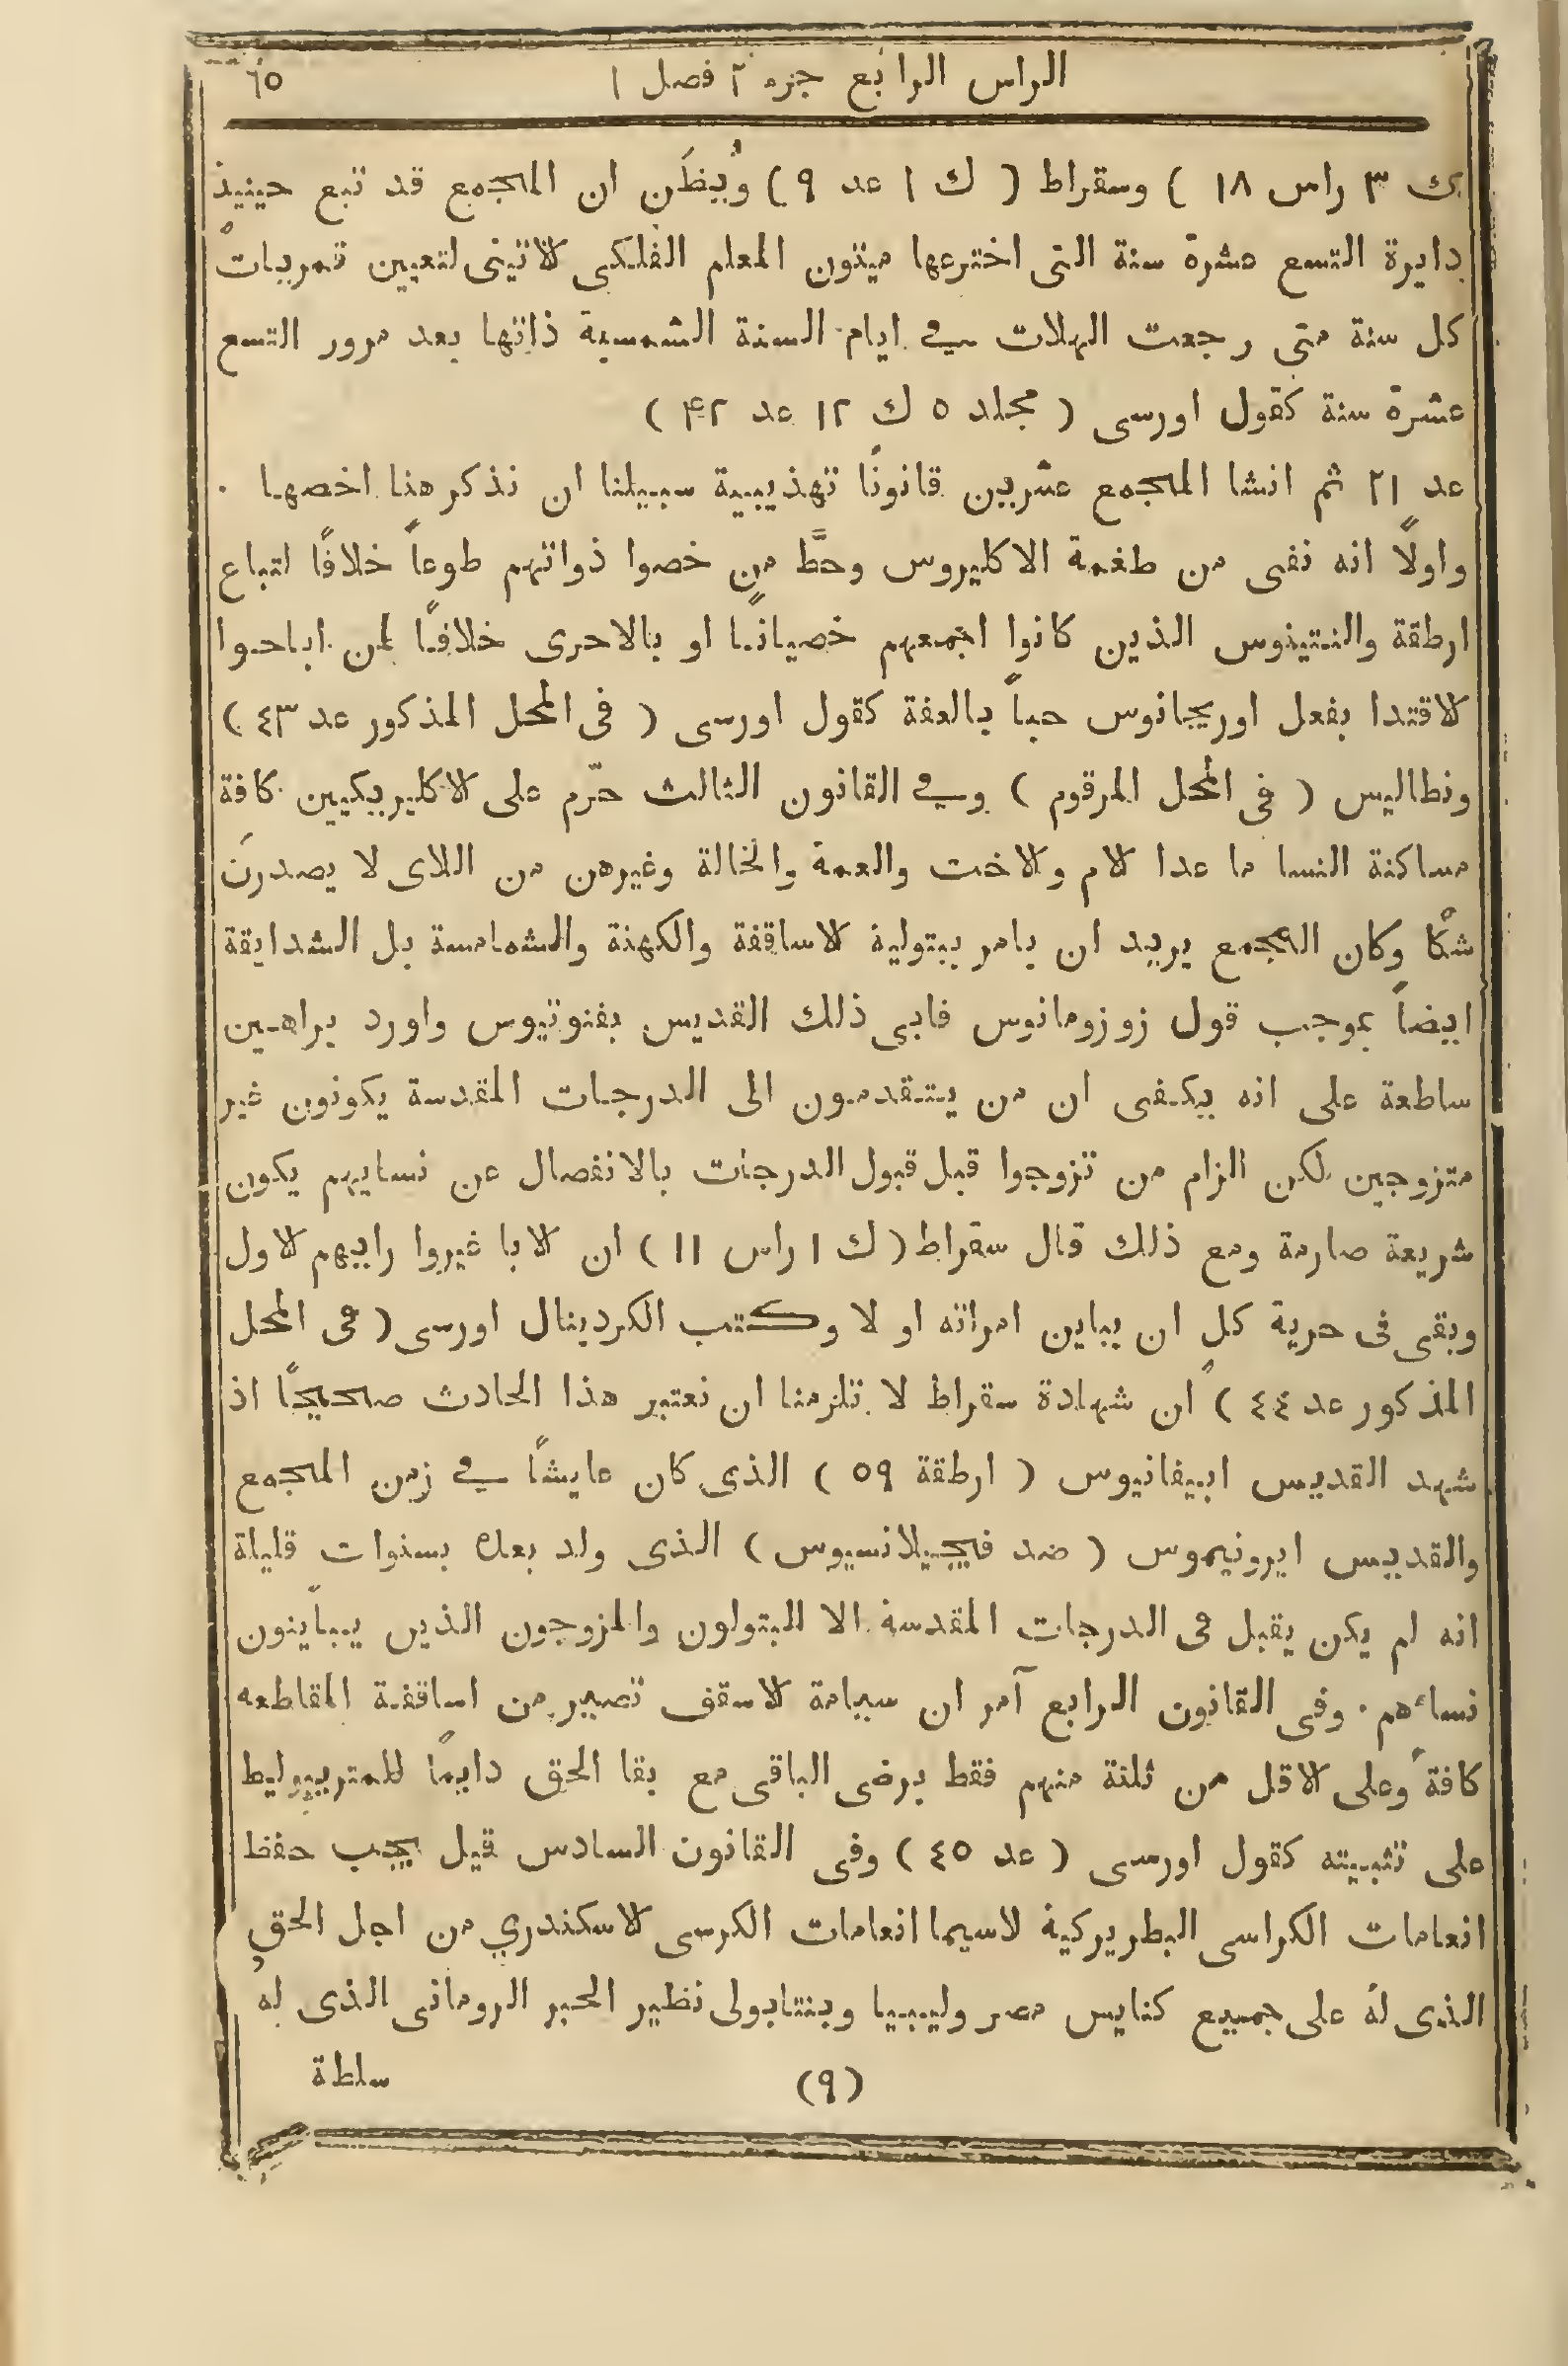 الراس الرابع جزء ٢ فصل ١ ٦٥
ك ٣ راس ١٨ ) وسقراط ( ك ١ عد ٩ ) ويُظَن ان المجمع قد تبع حينيذ
دايرة التسع عشرة سنة التى اخترعها ميتون المعلم الفلكى لاثينى لتعيين قمريات
كل سنة متى رجعت الهلات فى ايام السنة الشمسية ذاتها بعد مرور التسع
عشرة سنة كقول اورسى ( مجلد ٥ ك ١٢ عد ٤٢ )
عد ٢١ ثم انشا المجمع عشرين قانونًا تهذيبية سبيلنا ان نذكر هنا اخصها ٠
واولًا انه نفى من طغمة الاكليروس وحطَّ من خصوا ذواتهم طوعاً خلافًا لتباع
ارطقة والنتينوس الذين كانوا اجمعهم خصيانًا او بالاحرى خلافًا لمن اباحوا
لاقتدا بفعل اوريجانوس حباً بالعفة كقول اورسى ( فى المحل المذكور عد ٤٣ )
ونطاليس ( فى المحل المرقوم ) وفى القانون الثالث حرّم على لاكليريكيين كافة
مساكنة النسا ما عدا لام ولاخت والعمة والخالة وغيرهن من اللاى لا يصدرنَ
شكًا وكان المجمع يريد ان يامر ببتولية لاساقفة والكهنة والشمامسة بل الشدايقة
ايضاً بموجب قول زوزومانوس فابى ذلك القديس بفنوتيوس واورد براهين
ساطعة على انه يكفى ان من يتقدمون الى الدرجات المقدسة يكونون غير
متزوجين لكن الزام من تزوجوا قبل قبول الدرجات بالانفصال عن نسايهم يكون
شريعة صارمة ومع ذلك قال سقراط ( ك ١ راس ١١ ) ان لابا غيروا راييهم لاول
وبقى فى حرية كلٍ ان يباين امراته او لا وكتب الكردينال اورسى ( فى المحل
المذكور عد ٤٤ ) ان شهادة سقراط لا تلزمنا ان نعتبر هذا الحادث صحيحًا اذ
شهد القديس ابيفانيوس ( ارطقة ٥٩ ) الذى كان عايشًا فى زمن المجمع
والقديس ايرونيموس ( ضد فيجيلانسيوس ) الذى ولد بعده بسنوات قليلة
انه لم يكن يقبل فى الدرجات المقدسة الا البتولون والمزوجون الذين يباينون
نساءهم ٠ وفى القانون الرابع آمر ان سيامة لاسقف تصير من اساقفة المقاطعه
كافةً وعلى لاقل من ثلثة منهم فقط برضى الباقى مع بقا الحق دايمًا للمتريبوليط
على تثبيته كقول اورسى ( عد ٤٥ ) وفى القانون السادس قيل يجب حفظ
انعامات الكراسى البطريركية لاسيما انعامات الكرسى لاسكندري من اجل الحق
الذى لهُ على جميع كنايس مصر وليبيا وبنتابولى نظير الحبر الرومانى الذى لهُ
(٩) سلطة